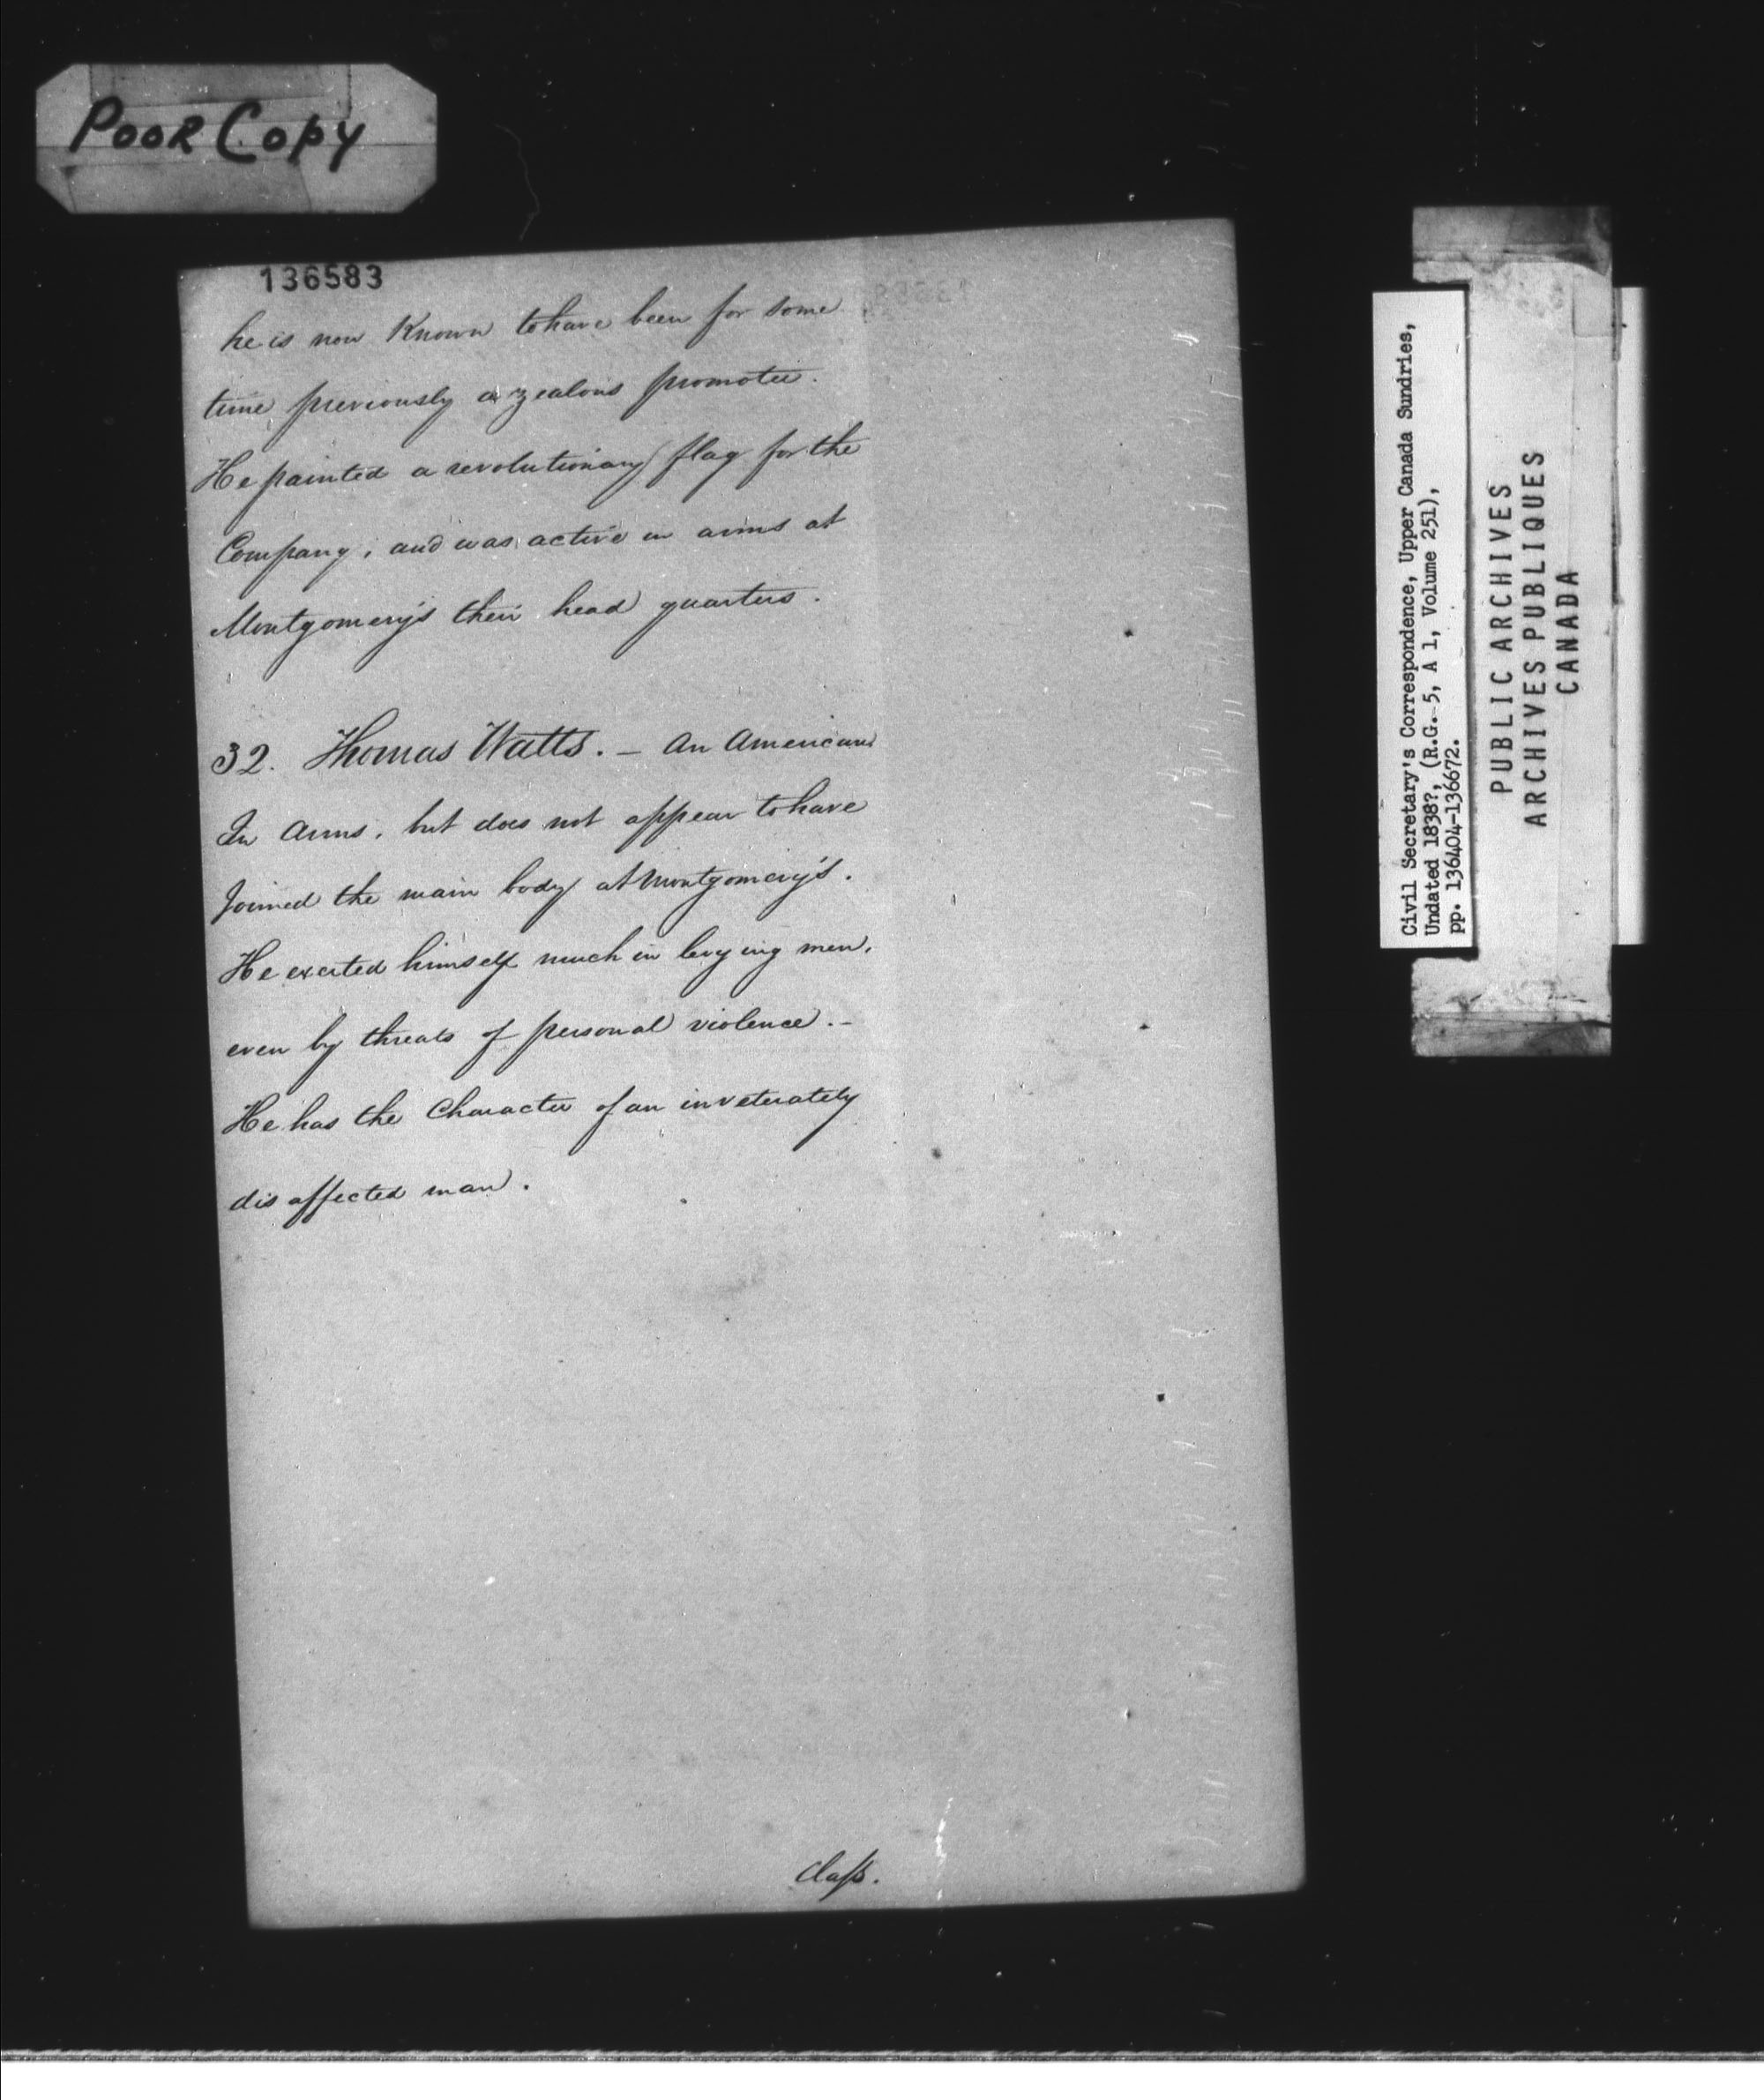 Poor Copy
136583
he is now Known to have been for some
time previously a zealous promoter.
He painted a revolutionary flag for the
Company, and was active in arms at
Montgomery's their head quarters.
32. Thomas Watts. – An American
In Arms, but does not appear to have
Joined the main body at Montgomery's.
He exerted himself much in levying men,
even by threats of personal violence. –
He has the Character of an inveterately
disaffected man.
Class.
Civil Secretary's Correspondence, Upper Canada Sundries,
Undated 1838?, (R.G. 5, A 1, Volume 251),
pp. 136404-136672.
PUBLIC ARCHIVES
ARCHIVES PUBLIQUES
CANADA